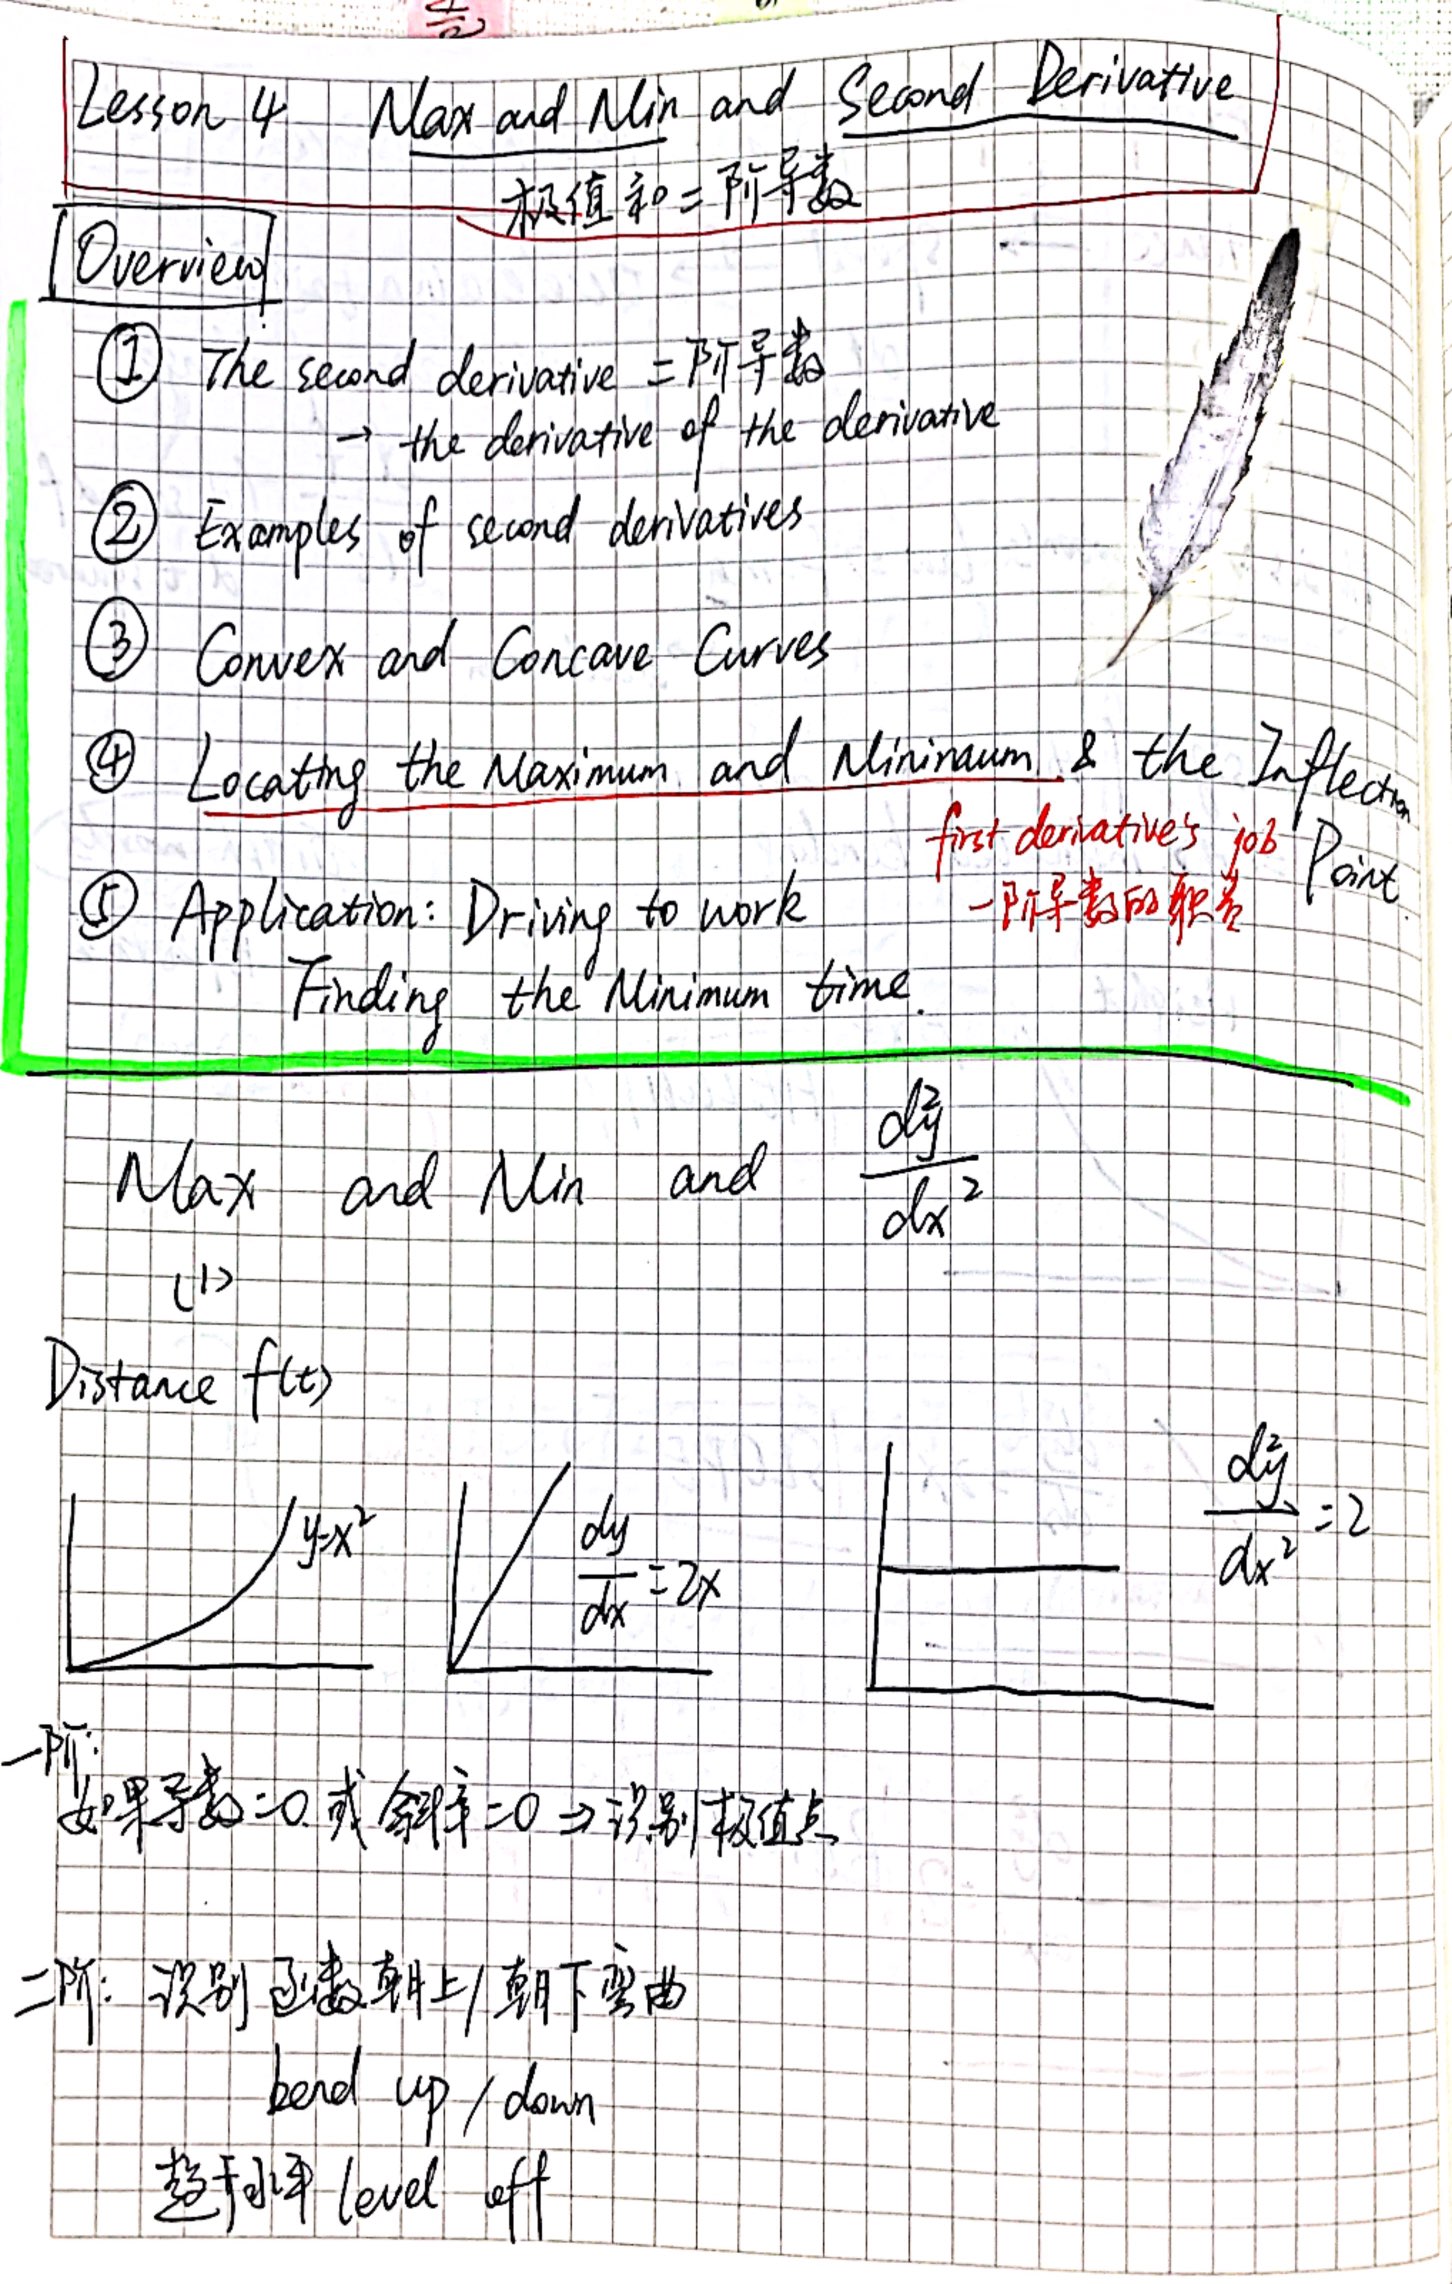 Lesson 4 Max and Min and Second Derivative
极值和二阶导数
Overview
① The second derivative 二阶导数
→ the derivative of the derivative
② Examples of second derivatives
③ Convex and Concave Curves
④ Locating the Maximum and Minimum & the Inflection
Point
first derivative's job
一阶导数的职责
⑤ Application: Driving to work
Finding the Minimum time.
Max and Min and d²y/dx²
(1)
Distance f(t)
y=x²
dy/dx=2x
d²y/dx²=2
一阶:
如果导数=0 或 斜率=0 → 识别极值点
二阶: 识别函数朝上/朝下弯曲
bend up/down
趋于水平 level off